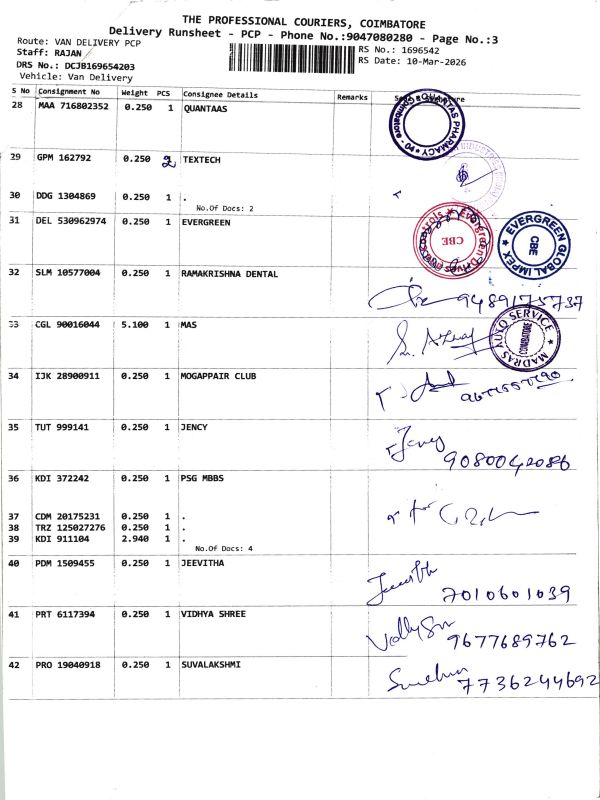 THE PROFESSIONAL COURIERS, COIMBATORE
Delivery Runsheet - PCP - Phone No.:9047080280 - Page No.:3
Route: VAN DELIVERY PCP
Staff: RAJAN
DRS No.: DCJB169654203
Vehicle: Van Delivery
RS No.: 1696542
RS Date: 10-Mar-2026
S No Consignment No Weight PCS Consignee Details Remarks
28 MAA 716802352 0.250 1 QUANTAAS
29 GPM 162792 0.250 2 TEXTECH
30 DDG 1304869 0.250 1 .
No.Of Docs: 2
31 DEL 530962974 0.250 1 EVERGREEN
CBE
EVERGREEN GLOBAL IMPEX
CBE
32 SLM 10577004 0.250 1 RAMAKRISHNA DENTAL
9489175737
33 CGL 90016044 5.100 1 MAS
MADRAS AUTO SERVICE
COIMBATORE
34 IJK 28900911 0.250 1 MOGAPPAIR CLUB
35 TUT 999141 0.250 1 JENCY
Jency
9080042086
36 KDI 372242 0.250 1 PSG MBBS
37 CDM 20175231 0.250 1 .
38 TRZ 125027276 0.250 1 .
39 KDI 911104 2.940 1 .
No.Of Docs: 4
40 PDM 1509455 0.250 1 JEEVITHA
7010601039
41 PRT 6117394 0.250 1 VIDHYA SHREE
9677689762
42 PRO 19040918 0.250 1 SUVALAKSHMI
7736244692